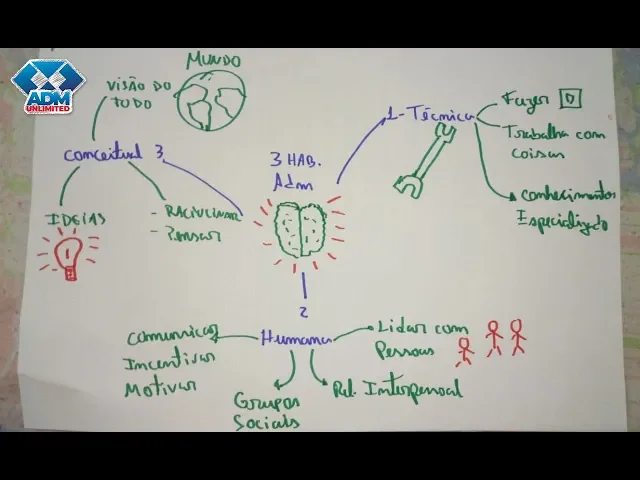 ADM
UNLIMITED
MUNDO
VISÃO DO
TUDO
Conceitual 3
IDEIAS
- RACIOCINAR
- Pensar
3 HAB.
Adm
1-Técnica
Fazer
Trabalha com
coisas
Conhecimentos
Especializado
2
Humana
Comunicar
Incentivar
Motivar
Grupos
Sociais
Rel. Interpessoal
Lidar com
Pessoas